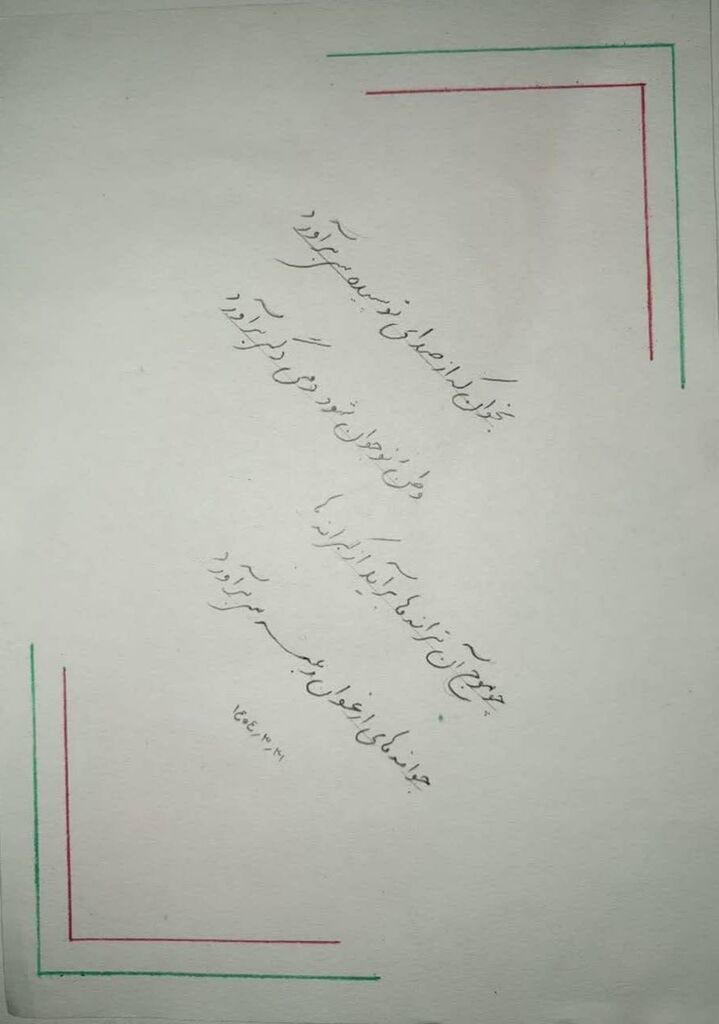 بخوان که از صدای تو سپیده سر برآورد
وطن ز نو جوان شود دمی دگر برآورد
چو موج آن ترانه ها برآید از کرانه ها
جوانه های ارغوان ز بیشه سر برآورد
۱۴۰۴٫۳٫۳۱